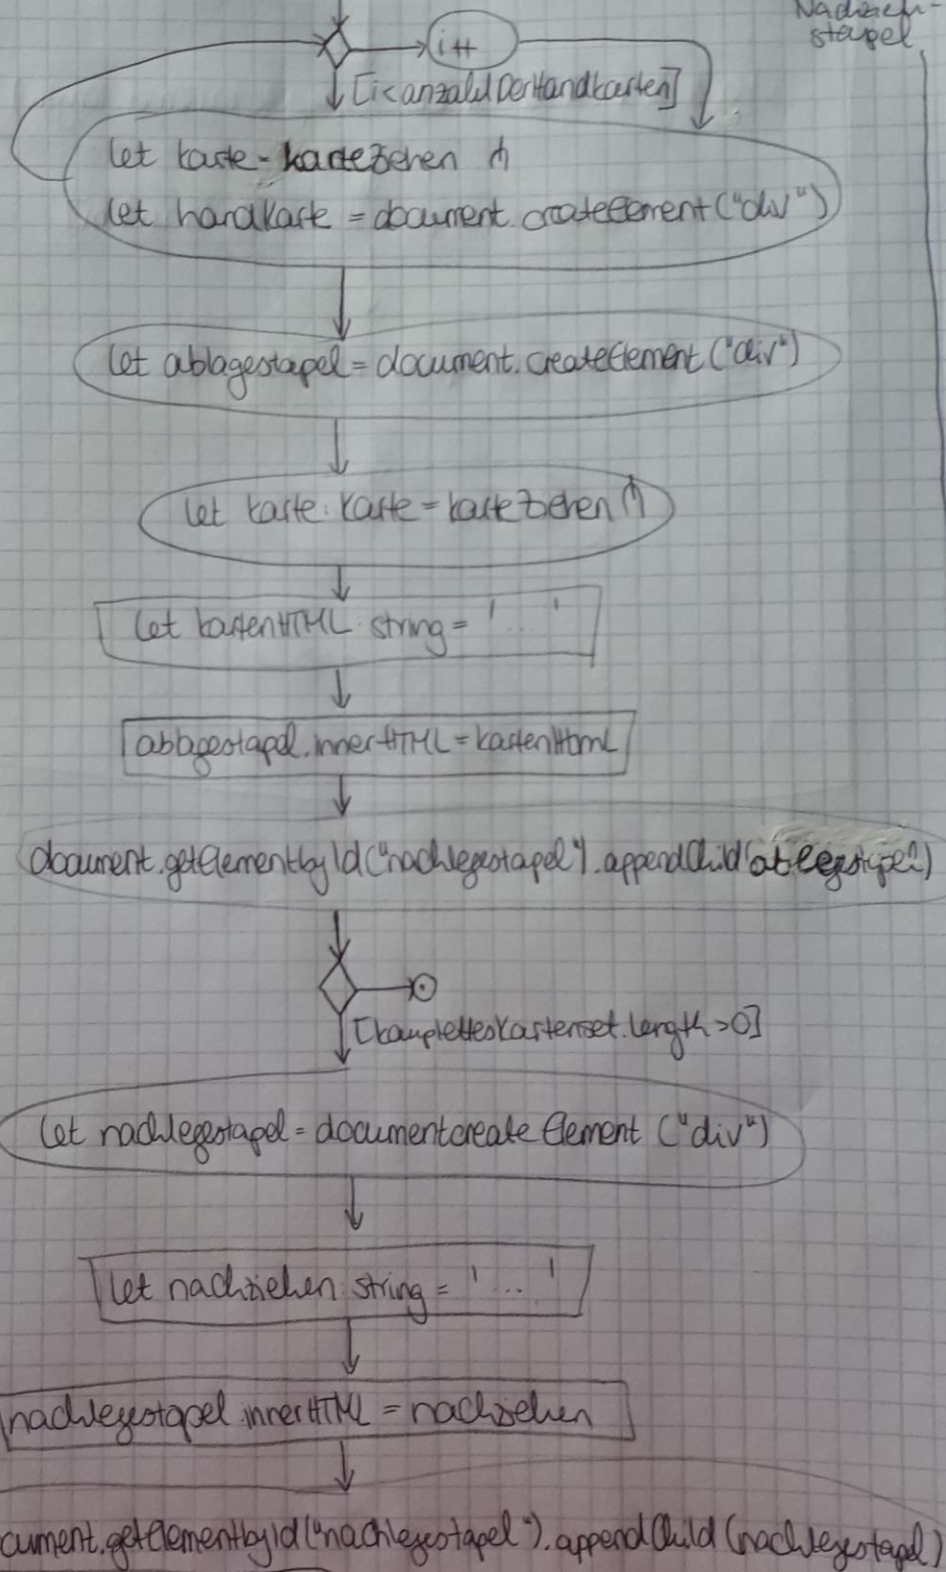 Nachzieh-
stapel
i++
[i<anzahlDerHandkarten]
let karte = karteZiehen ()
let handkarte = document.createElement("div")
let ablagestapel = document.createElement("div")
let karte: Karte = karteZiehen ()
let kartenHTML: string = '...'
ablagestapel.innerHTML = kartenHtml
document.getElementbyId("nachlegestapel").appendChild(ablegestapel)
[komplettesKartenset.length>0]
let nachlegestapel = documentcreate Element ("div")
let nachziehen: string = '...'
nachlegestapel.innerHTML = nachziehen
cument.getElementbyId("nachlegestapel").appendChild(nachlegestapel)